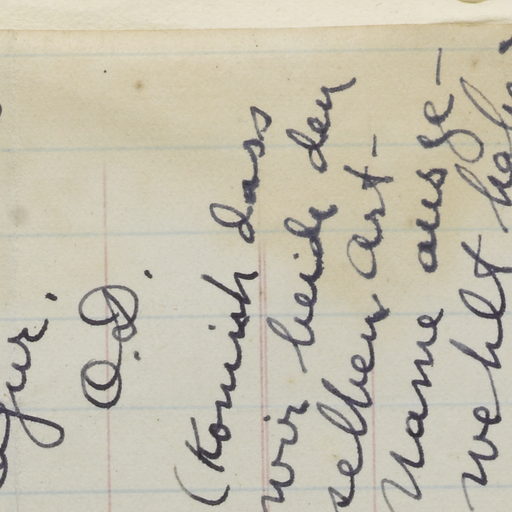 O.D.
(Komish dass
wir beide den
selben Art-
Name ausge-
wehlt